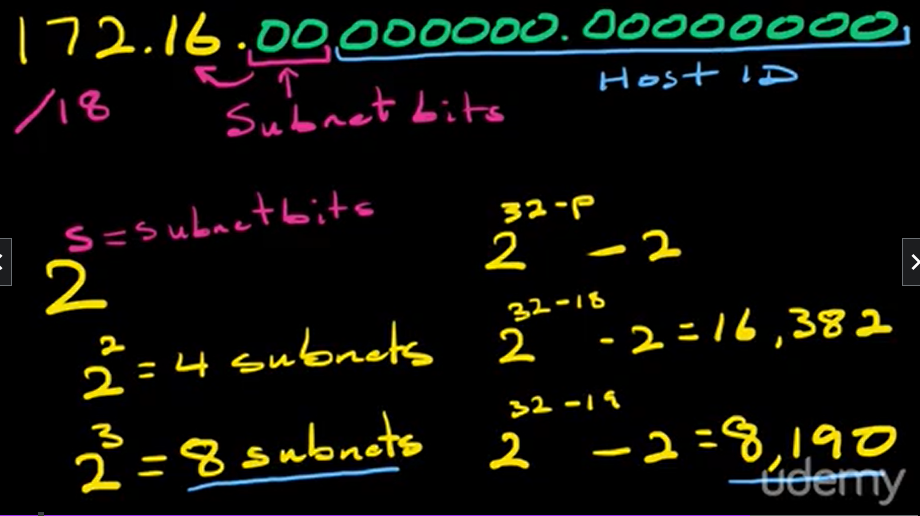 172.16.00000000.00000000
/18
Subnet bits
Host ID
2^s=subnetbits
2^2 = 4 subnets
2^3 = 8 subnets
2^32-p - 2
2^32-18 - 2 = 16,382
2^32-19 - 2 = 8,190
udemy